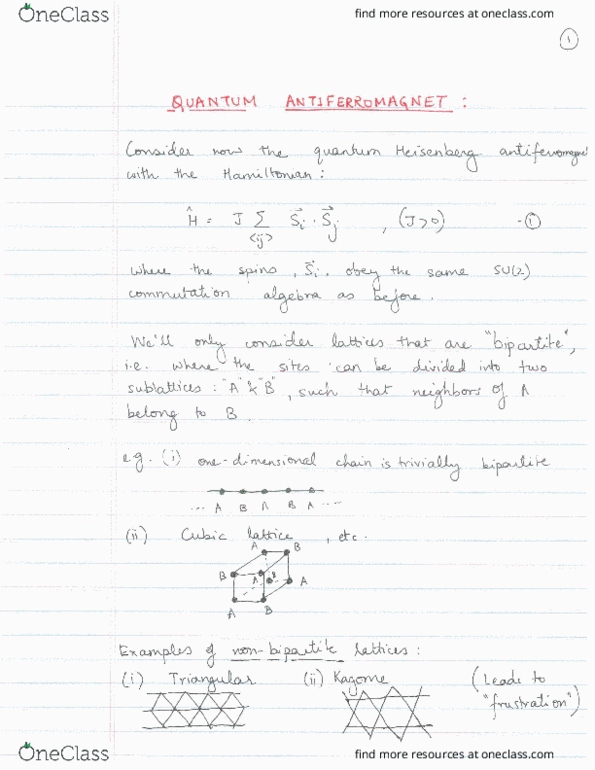 OneClass
find more resources at oneclass.com
1
QUANTUM ANTIFERROMAGNET :
Consider now the quantum Heisenberg antiferromagnet
with the Hamiltonian :
Ĥ = J Σ S⃗i · S⃗j , (J>0) -①
<ij>
where the spins, S⃗i, obey the same SU(2)
commutation algebra as before.
We'll only consider lattices that are "bipartite",
i.e. where the sites can be divided into two
sublattices : "A" & "B", such that neighbors of A
belong to B.
e.g. (i) one-dimensional chain is trivially bipartite
... A B A B A ....
(ii) Cubic lattice , etc.
A B
B A B A
A B
Examples of non-bipartite lattices :
(i) Triangular (ii) Kagome (Leads to
"frustration")
OneClass
find more resources at oneclass.com